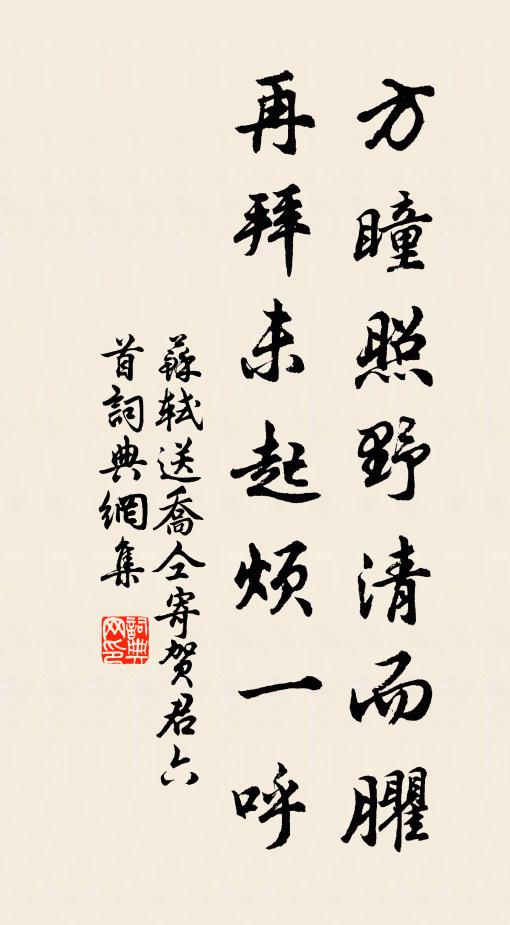 方瞳照野清而臞
再拜未起煩一呼
蘇軾送喬仝寄賀君六
首詞典網集
詞典网印